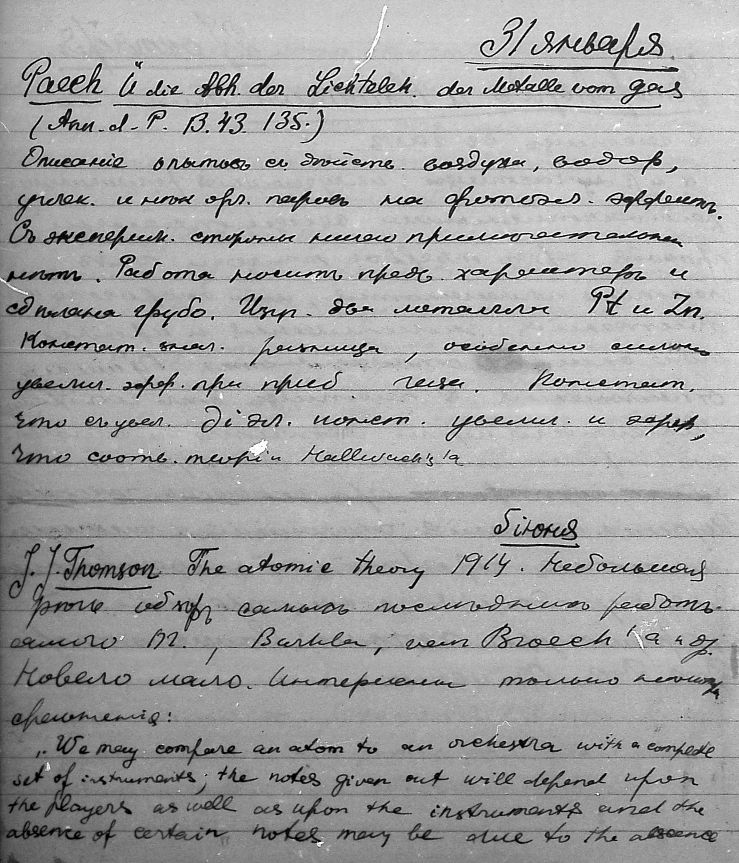 31 января.
Paech Ü die Abh. der Lichtelek. der Metalle vom gas
(Ann. d. P. B. 43 135.)
Описанiе опытовъ съ дѣйств. воздуха, водор,
углек. и паровъ на фотоэл. эффектъ.
Съ эксперим. стороны ничего примѣчательн
нѣтъ. Работа носитъ предв. характеръ и
сдѣлана грубо. Изуч. два металла Pt и Zn.
Констат. знач. разница, особенно сильно
увелич. эфф. при приб газа. Констат.
что съ увел. дiэл. конст. увелич. и эфф,
что соотв. теорiи Hallwachs'а
5 июня
J. J. Thomson The atomic theory 1914. Небольшая
рѣчь обзоръ самыхъ послѣднихъ работъ
самого Т., Barkla, van Broeck'а и др.
Новаго мало. Интересны только
сравненiя:
„We may compare an atom to an orchestra with a complete
set of instruments; the notes given out will depend upon
the players as well as upon the instruments and the
absence of certain notes may be due to the absence